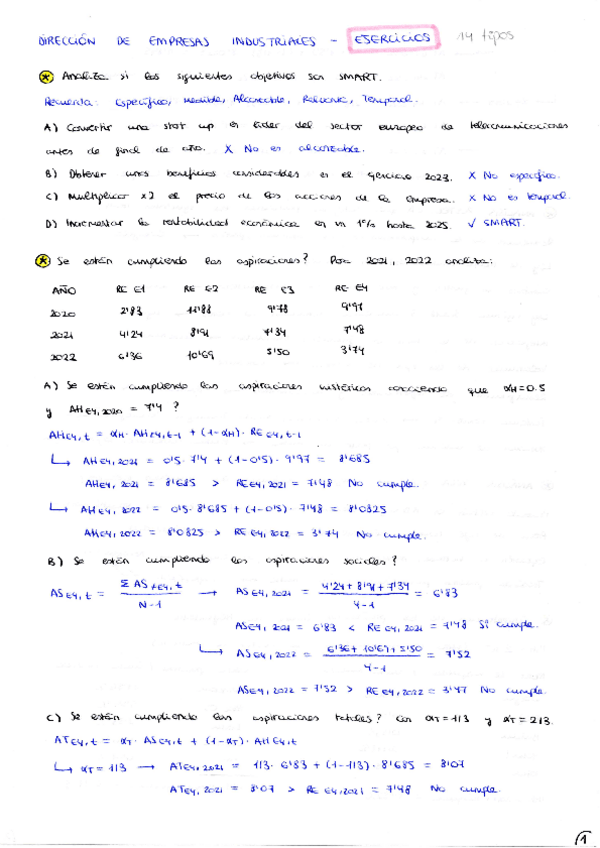 DIRECCIÓN DE EMPRESAS INDUSTRIALES - EJERCICIOS 14 tipos
Analiza si los siguientes objetivos son SMART.
Recuerda: Específico, Medible, Alcanzable, Relevante, Temporal.
A) Convertir una stat up en líder del sector europeo de telecomunicaciones
antes de final de año. X No es alcanzable.
B) Obtener unos beneficios considerables en el ejercicio 2023. X No específico.
C) Multiplicar x2 el precio de las acciones de la empresa. X No es temporal.
D) Incrementar la rentabilidad económica en un 1% hasta 2025. ✓ SMART.
Se están cumpliendo las aspiraciones? Para 2021, 2022 analiza:
AÑO RE E1 RE E2 RE E3 RE E4
2020 2'83 11'88 9'78 9'97
2021 4'24 8'91 7'34 7'48
2022 6'36 10'69 5'50 3'74
A) Se están cumpliendo las aspiraciones históricas conociendo que αH=0.5
y AH E4, 2020 = 7'4 ?
AH E4, t = αH · AH E4, t-1 + (1-αH) · RE E4, t-1
↳ AH E4, 2021 = 0'5 · 7'4 + (1-0'5) · 9'97 = 8'685
AH E4, 2021 = 8'685 > RE E4, 2021 = 7'48 No cumple.
↳ AH E4, 2022 = 0'5 · 8'685 + (1-0'5) · 7'48 = 8'0825
AH E4, 2022 = 8'0825 > RE E4, 2022 = 3'74 No cumple.
B) Se están cumpliendo las aspiraciones sociales?
AS E4, t = Σ AS ≠E4, t / N-1 → AS E4, 2021 = 4'24 + 8'91 + 7'34 / 4-1 = 6'83
AS E4, 2021 = 6'83 < RE E4, 2021 = 7'48 Sí cumple.
↳ AS E4, 2022 = 6'36 + 10'69 + 5'50 / 4-1 = 7'52
AS E4, 2022 = 7'52 > RE E4, 2022 = 3'47 No cumple.
C) Se están cumpliendo las aspiraciones totales? Con αT=1/3 y αT=2/3.
AT E4, t = αT · AS E4, t + (1-αT) · AH E4, t
↳ αT = 1/3 → AT E4, 2021 = 1/3 · 6'83 + (1-1/3) · 8'685 = 8'07
AT E4, 2021 = 8'07 > RE E4, 2021 = 7'48 No cumple.
1